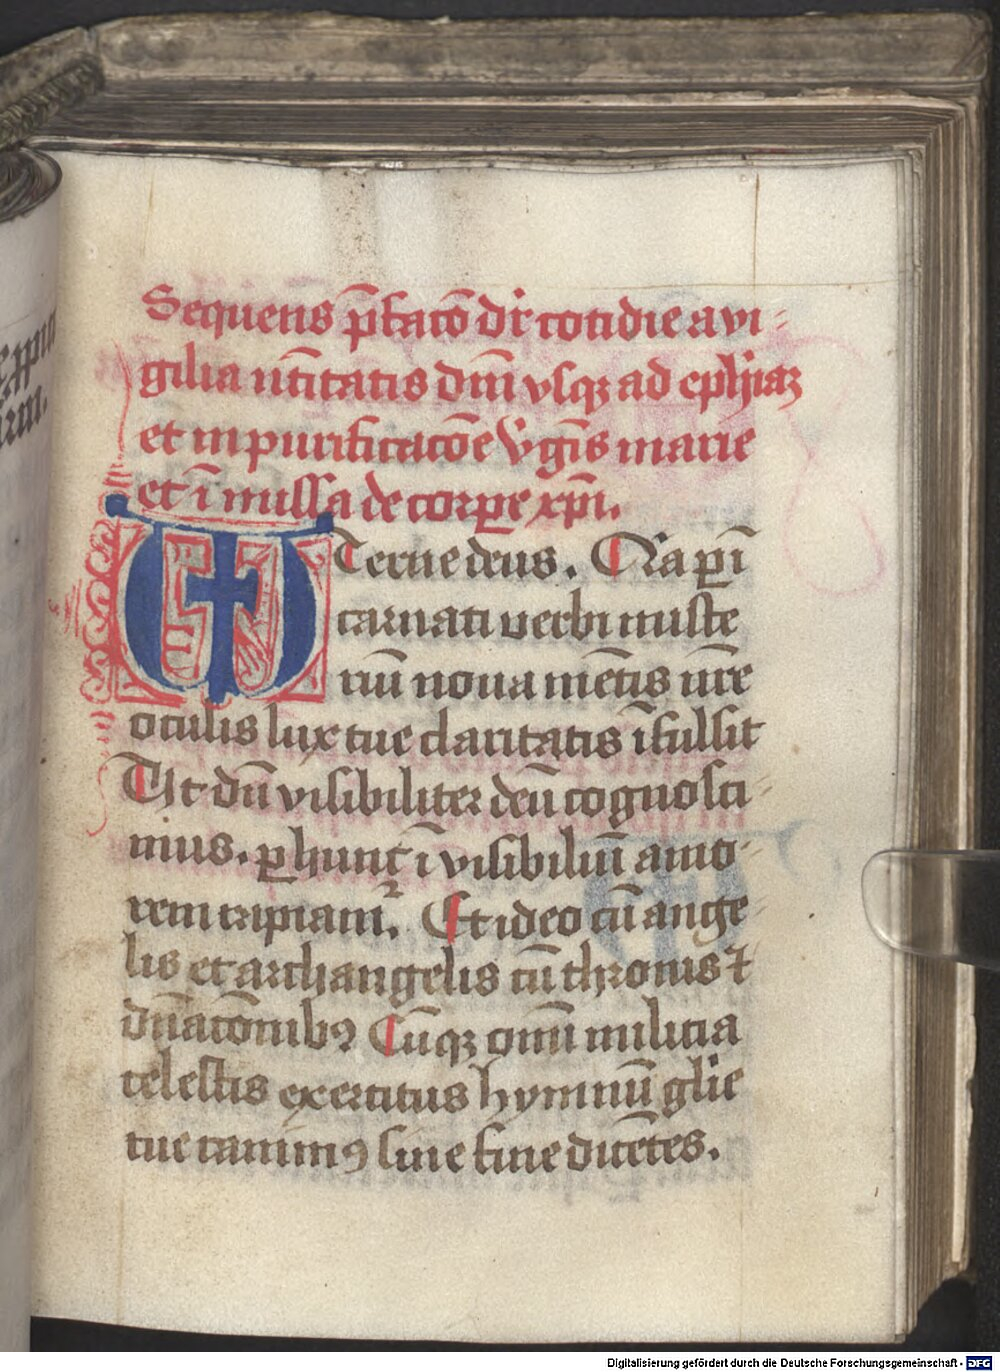 Sequens p̄facō dr̄ cotidie a vi-
gilia nt̄itatis dn̄i vsqꝫ ad ephiaꝫ
et in purificacōe v̾gīs marie
et ī missa de corꝑe xp̄i.
Terne deus. Quia ꝑ ī
carnati verbi miste
riū noua mētis nr̄e
oculis lux tue claritatis īfulsit
Ut dū visibiliter deū cognosci-
mus. ꝑ hunc ī visibiliū amo-
rem rapiamꝰ. Et ideo cū ange-
lis et archangelis cū thronis ⁊
dn̄acōnibꝰ Cūqꝫ omī militia
celestis exercitus hymnū glīe
tue canimꝰ sine fine dicētes.
Digitalisierung gefördert durch die Deutsche Forschungsgemeinschaft - DFG